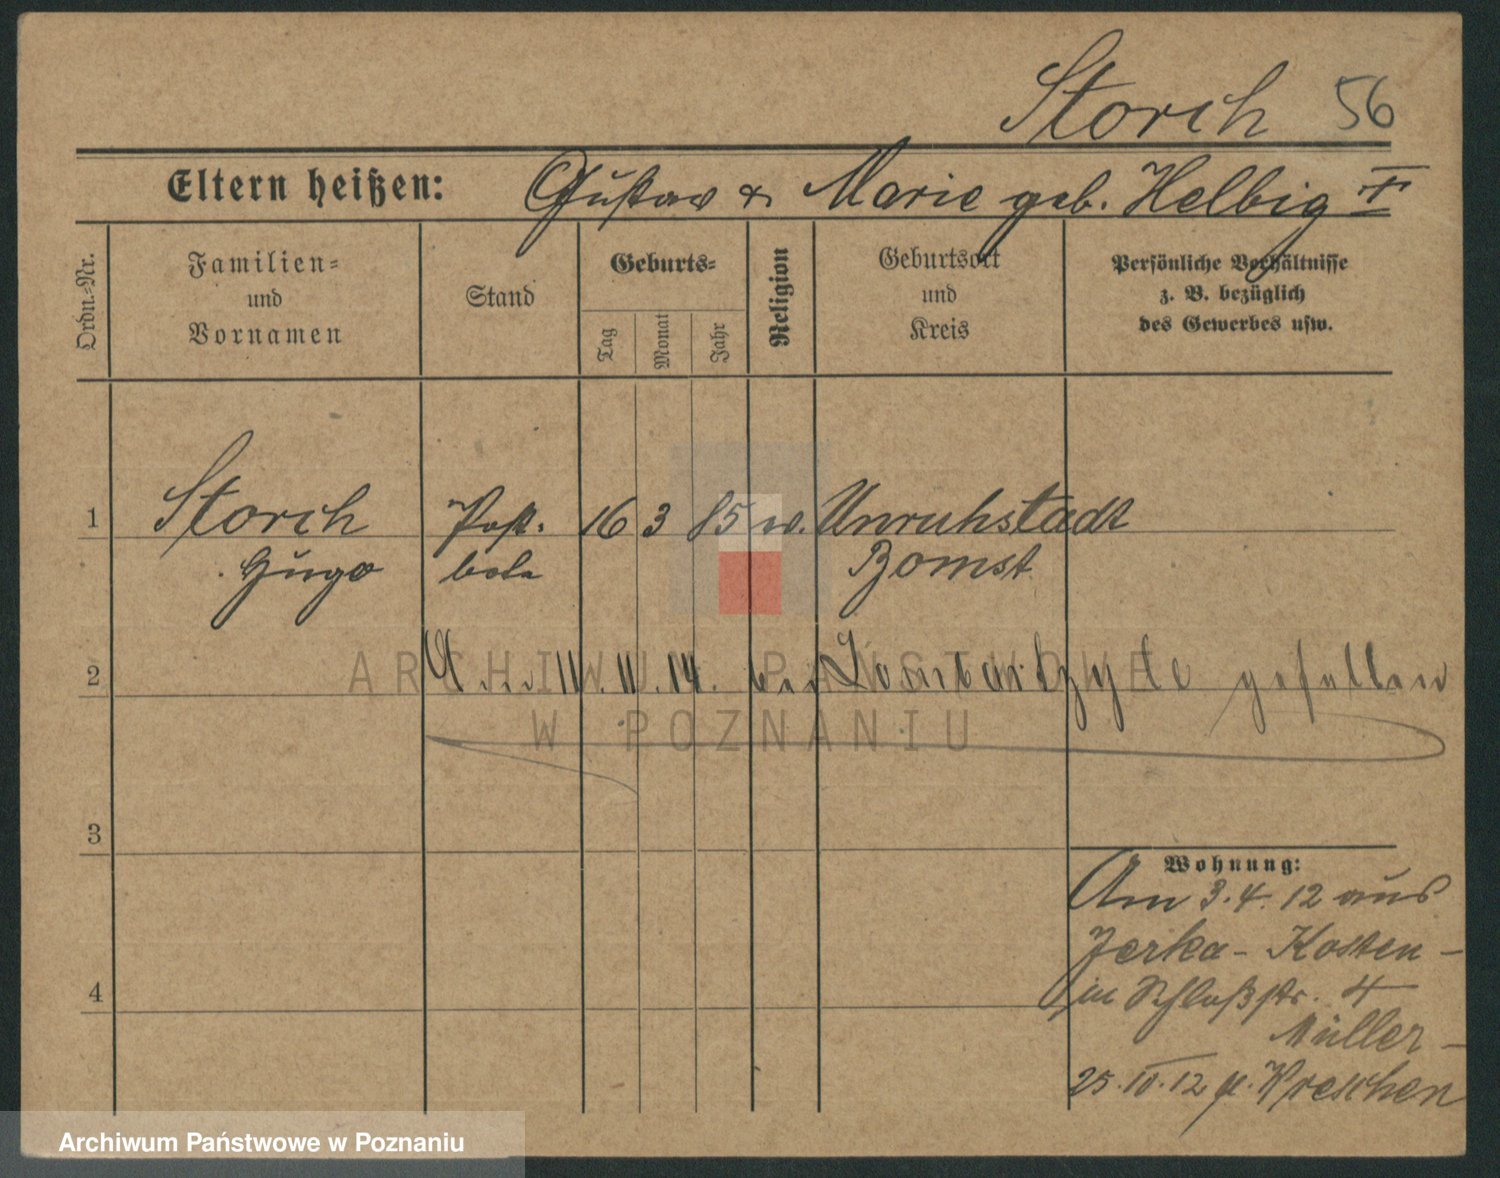 Storch 56
Eltern heißen: Gustav & Marie geb. Helbig †
Ordn.-Nr.
Familien-
und
Vornamen
Stand
Geburts-
Tag
Monat
Jahr
Religion
Geburtsort
und
Kreis
Persönliche Verhältnisse
z. B. bezüglich
des Gewerbes usw.
1 Storch Post- 16 3 85 w. Unruhstadt
Hugo bote Bomst
2 11. 11. 14. bei gefallen
ARCHIWUM PAŃSTWOWE
W POZNANIU
3
Wohnung:
Am 3.4.12 aus
Jerka - Kosten -
in Schloßstr. 4
4
Müller -
25.IV.12 Wreschen
Archiwum Państwowe w Poznaniu